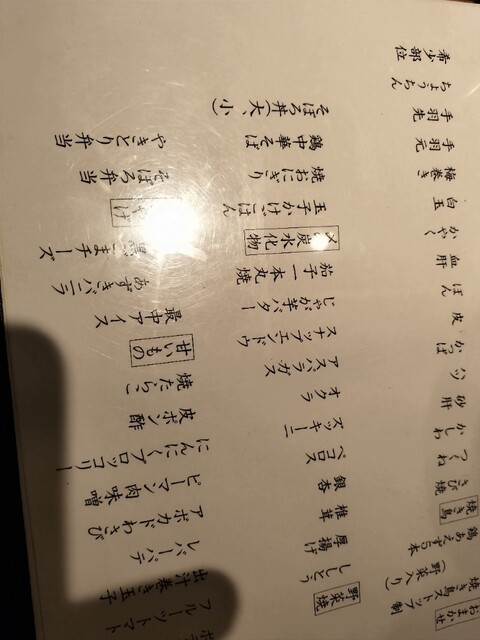 おまかせ
焼き鳥ストップ制
(野菜入り)
鶏あえず5本
焼き鳥
さび焼
つくね
かしわ
砂肝
ハツ
かっぱ
皮
ぼん
血肝
かやく
白玉
梅巻き
手羽元
手羽先
ちょうちん
希少部位
野菜焼
ししとう
厚揚げ
椎茸
銀杏
ペコロス
ズッキーニ
オクラ
アスパラガス
スナップエンドウ
じゃが芋バター
茄子一本丸焼
〆炭水化物
玉子かけごはん
焼おにぎり
鶏中華そば
そぼろ丼(大、小)
フルーツトマト
出汁巻き玉子
レバーパテ
アボカドわさび
ピーマン肉味噌
にんにくブロッコリー
皮ポン酢
焼たらこ
甘いもの
最中アイス
あずきバニラ
黒ごまチーズ
そぼろ弁当
やきとり弁当